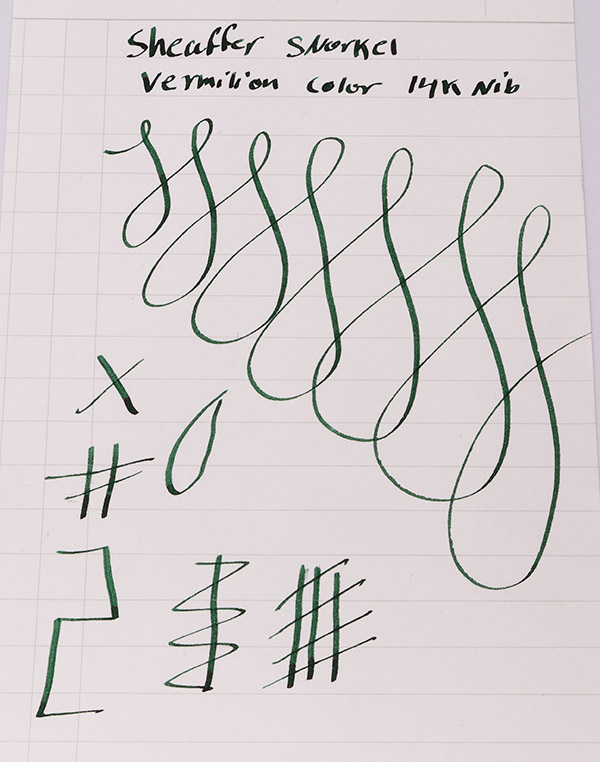 Sheaffer Snorkel
Vermilion Color 14K Nib